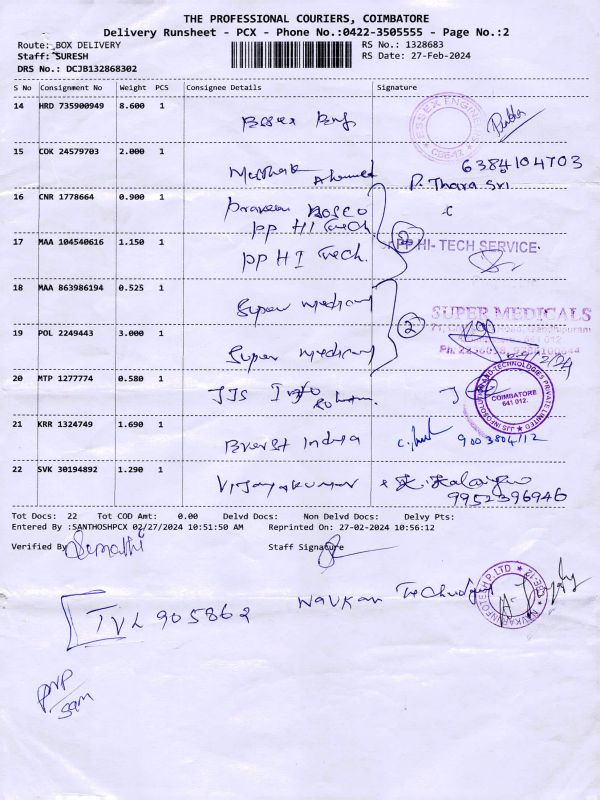 THE PROFESSIONAL COURIERS, COIMBATORE
Delivery Runsheet - PCX - Phone No.:0422-3505555 - Page No.:2
Route: BOX DELIVERY RS No.: 1328683
Staff: SURESH RS Date: 27-Feb-2024
DRS No.: DCJB132868302
S No Consignment No Weight PCS Consignee Details Signature
14 HRD 735900949 8.600 1
15 COK 24579703 2.000 1 Ahamed 6384104703
P. Thara Sri.
16 CNR 1778664 0.900 1 Praveen Bosco
PP HI Tech.
17 MAA 104540616 1.150 1 PP HI Tech. 2 PP HI- TECH SERVICE
18 MAA 863986194 0.525 1 Super medical SUPER MEDICALS
19 POL 2249443 3.000 1 Super medical 2
20 MTP 1277774 0.580 1 JJS Info COIMBATORE
641 012.
21 KRR 1324749 1.690 1 India 9003804112
22 SVK 30194892 1.290 1 Vijayakumar 9952396946
Tot Docs: 22 Tot COD Amt: 0.00 Delvd Docs: Non Delvd Docs: Delvy Pts:
Entered By :SANTHOSHPCX 02/27/2024 10:51:50 AM Reprinted On: 27-02-2024 10:56:12
Verified By Staff Signature
TVL 905862 Navkar